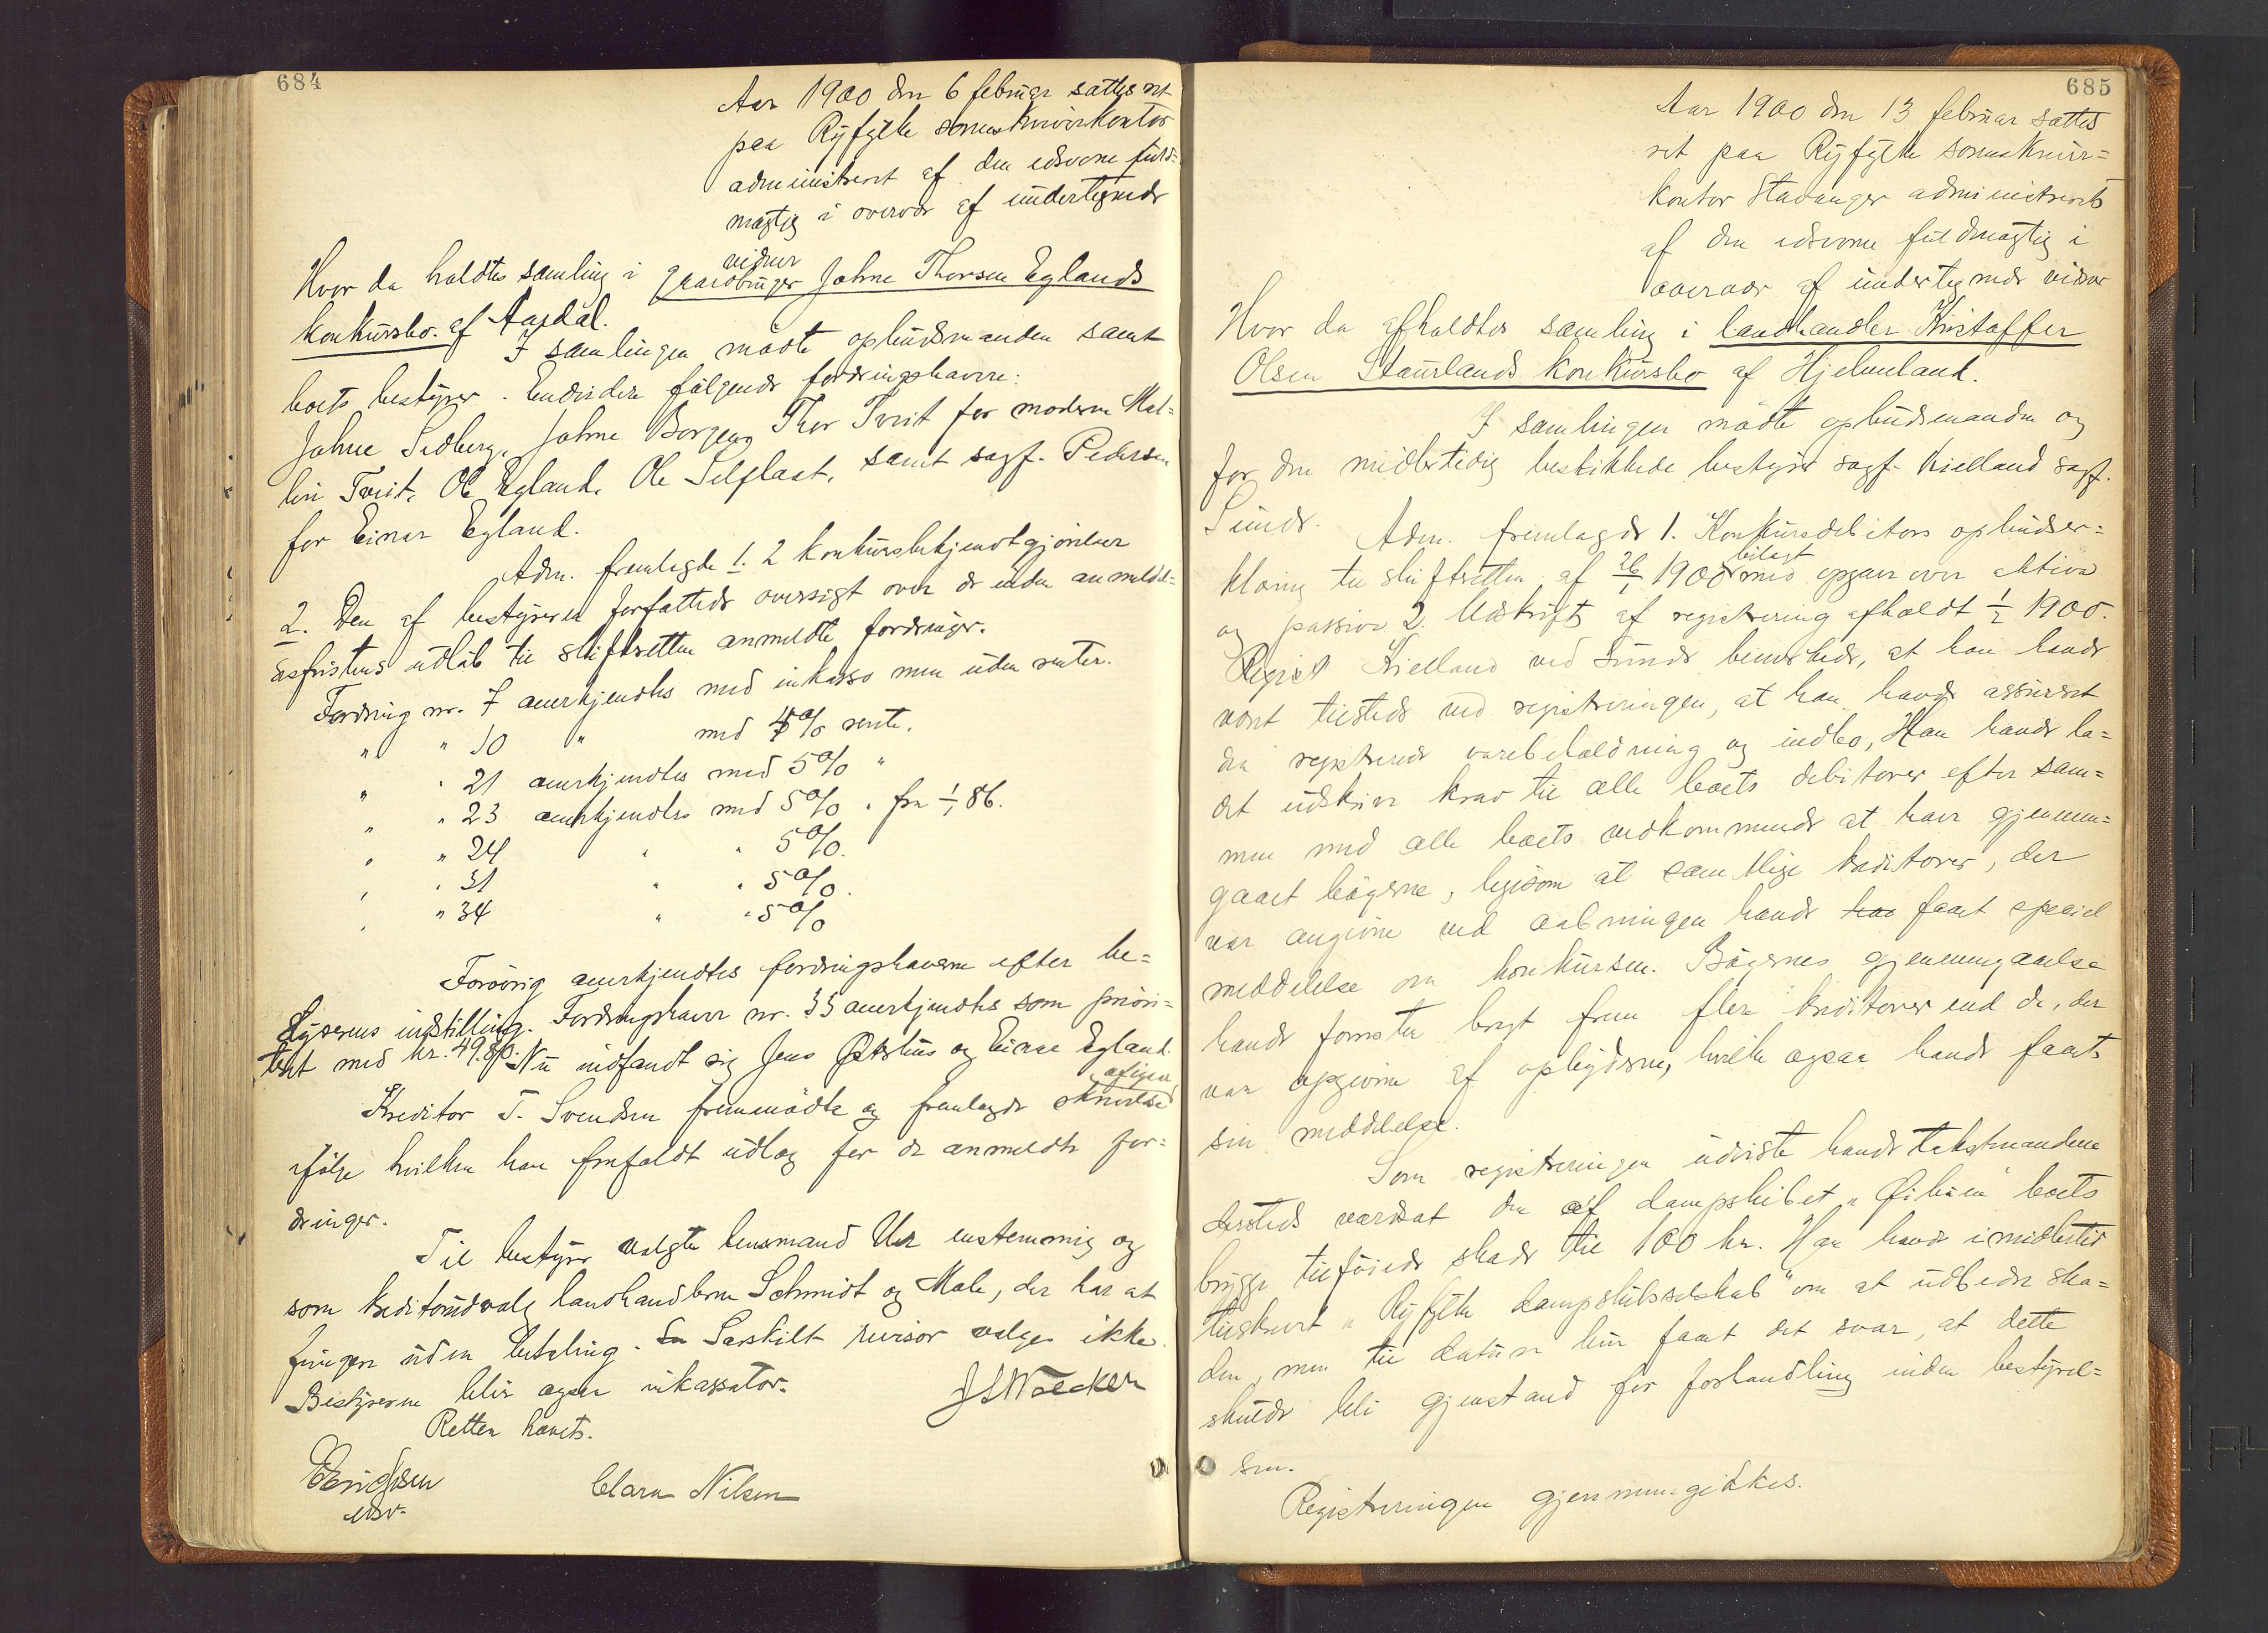 684
Aar 1900 den 6 februar sattes ret
paa Ryfylke sorenskriverkontor
administreret af den edsvorne fuld=
mægtig i overvær af undertegnede
vidner
Hvor da holdtes samling i gaardbruger Johne Thorsen Eglands
konkursbo af Aardal.
I samlingen mødte opbudsmanden samt
boets bestyrer. Endvidere følgende fordringshavere:
Johne Sedberg, Johne Borgen, Thor Tveit for moderen Mal=
lin Tveit, Ole Egland, Ole Selflaat, samt sagf. Pedersen
for Einar Egland.
Adm. fremlagde 1. 2 konkursbekjendtgjørelser
2. Den af bestyreren forfattede oversigt over de inden anmeldel=
sesfristens udløb til skifteretten anmeldte fordringer.
Fordring nr. 7 anerkjendtes med inkasso men uden renter.
" " 10 " med 4% rente.
" " 21 anerkjendtes med 5% "
" " 23 anerkjendtes med 5% " fra 1/1 86.
" " 24 " " 5%.
" " 31 " " 5%.
" " 34 " " 5%
Forøvrig anerkjendtes fordringshaverne efter be=
styrerens indstilling. Fordringshaver nr. 35 anerkjendtes som priori=
teret med kr. 49.80. Nu indfandt sig Jens Østhus og Einar Egland.
Kreditor T. Svendsen fremmødte og fremlagde skrivelse
ifølge hvilken han frafaldt udlæg for de anmeldte for=
dringer.
Til bestyrer valgtes lensmand Um enstemmig og
som kreditorudvalg landhandlerne Schmidt og Male, der har at
fungere uden betaling. Særskilt revisor valges ikke.
Bestyreren blir ogsaa inkassator.
Retten hævet.
Clara Nilsen
685
Aar 1900 den 13 februar sattes
ret paa Ryfylke sorenskriver=
kontor Stavanger administreret
af den edsvorne fuldmægtig i
overvær af undertegnede vidner
Hvor da afholdtes samling i landhandler Kristoffer
Olsen Staurlands konkursbo af Hjelmeland.
I samlingen mødte opbudsmanden og
for den midlertidig beskikkede bestyrer sagf. Kielland sagf.
Sunde. Adm. fremlagde 1. Konkursdebitors opbudser=
bilagt
klæring til skifteretten af 26/1 1900 med opgave over aktiva
og passiva 2. Udskrift af registrering afholdt 1/2 1900.
Kielland ved Sunde bemerkede, at han havde
vært tilstede ved registreringen, at han havde assureret
den registrerede varebeholdning og indbo, Han havde la=
det udskrive krav til alle boets debitorer efter sam=
men med alle boets vedkommende at have gjennem=
gaaet bøgerne, ligesom at samtlige kreditorer, der
var angivne ved aabningen havde faaet speciel
meddelelse om konkursen. Bøgernes gjennemgaaelse
havde forresten bragt frem flere kreditorer end de, der
var opgivne af opbyderen, hvilke ogsaa havde faaet
sin meddelelse.
Som registreringen udviste havde takstmændene
dersteds værdsat den af dampskibet "Øibuen" boets
brygge tilføiede skade til 100 kr. Han havde imidlertid
tilskrevet "Ryfylke dampskibsselskab" om at udbedre ska=
den, men til datum kun faaet det svar, at dette
skulde bli gjenstand for forhandling inden bestyrel=
sen.
Registreringen gjennemgikkes.